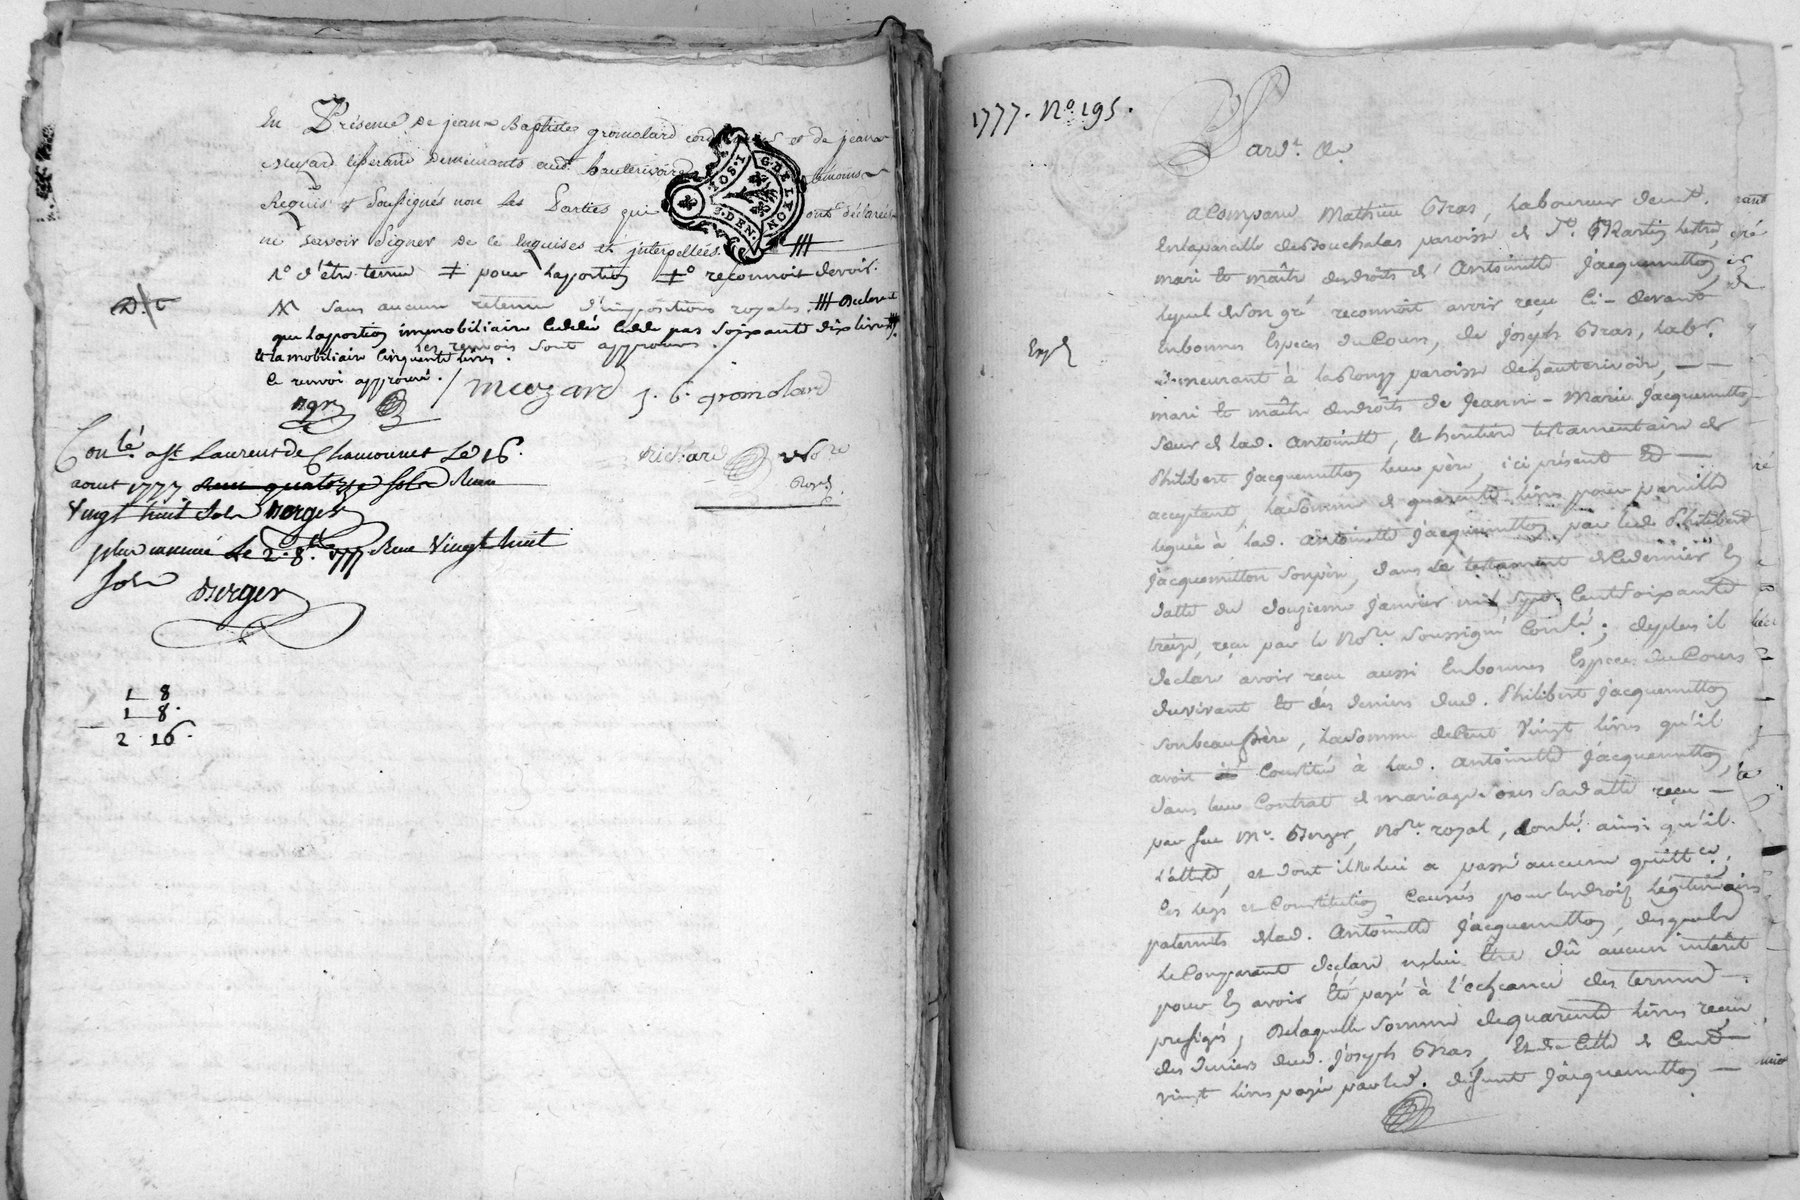 En Présence de jean Baptiste gromolard cord et de jean
Muzard tisserand demeurants aud. hauterivoire témoins
Requis et soussignés non les Parties qui ont déclarées
ne savoir signer de ce enquises et interpellées. ///
1º d'être tenue ⧧ pour la portion ⧧º reconnoit devoir.
D. t. X sans aucune retenue d'impositions royales. /// Declarent
que la portion immobiliaire cedée cede pas soixante dix livres
et la mobiliaire cinquante livres. les renvois sont approuvés.
ce renvoi approuvé. / muzard J. B. gromolard
Richard Nore
Royal
Conlé à St Laurent de Chamousset le 16.
aout 1777 Reçu quatorze sols Reçu
Vingt huit sols Berger
plus insinué le 2. 8bre 1777 Reçu Vingt huit
sols Berger
1 8
1 8.
2 16.
1777. Nº 195.
Pardt. &c.
a Comparu Mathieu Bras, laboureur demt.
en la parcelle des Bouchalas paroisse de St. Martin lestra,
mari et maître des droits d'Antoinette Jacquemetton,
lequel de son gré reconnoit avoir reçu ci-devant
Expd
en bonnes Especes du Cours, de Joseph Bras, labr.
demeurant à la Rongy paroisse de hauterivoir, —
mari et maître des droits de Jeanne-Marie Jacquemetton
sœur de lad. Antoinette, et heritiere testamentaire de
Philibert Jacquemetton leur père, ici présent et —
acceptant, la somme de quarante livres pour pareille
leguée à lad. Antoinette Jacquemetton par led. Philibert
Jacquemetton son père, dans le testament de ce dernier en
datte du douzieme Janvier mil sept Cent soixante
treize, reçu par le Nore. soussigné Conlé; de plus il
declare avoir reçu aussi En bonnes Especes du Cours
du vivant et des deniers dud. Philibert Jacquemetton
son beau père, la somme de Cent Vingt livres qu'il
avoit Constitué à lad. Antoinette Jacquemetton,
dans leur Contrat de mariage sous sa datte reçu —
par feu Me. Berger, Nore. royal, Conlé. ainsi qu'il
l'atteste, et dont il ne lui a passé aucune quittce,
les legs et Constitution Causés pour les droits légitimaires
paternels de lad. Antoinette Jacquemetton, desquels
le Comparant declare ne lui être dû aucun intérêt
pour en avoir été payé à l'echéance des termes —
prefigés, De laquelle somme de quarante livres reçue
des deniers dud. Joseph Bras, Et de celle de Cent —
vingt livres payée par led. défunt Jacquemetton —